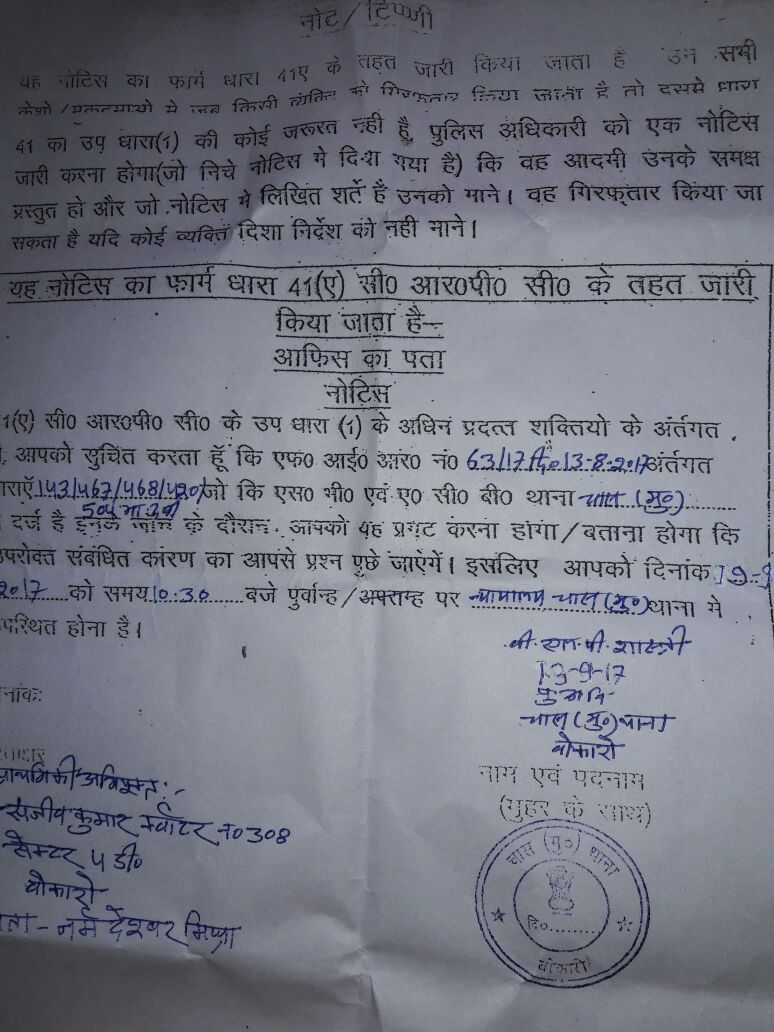 नोट/टिप्पणी
यह नोटिस का फार्म धारा 41ए के तहत जारी किया जाता है उन सभी
केशो/मुकदमाओ मे जब किसी व्यक्ति को गिरफ्तार किया जाता है तो उसमे धारा
41 का उप धारा(1) की कोई जरूरत नही है, पुलिस अधिकारी को एक नोटिस
जारी करना होगा(जो निचे नोटिस मे दिया गया है) कि वह आदमी उनके समक्ष
प्रस्तुत हो और जो नोटिस मे लिखित शर्ते है उनको माने। वह गिरफ्तार किया जा
सकता है यदि कोई व्यक्ति दिशा निर्देश को नही माने।
यह नोटिस का फार्म धारा 41(ए) सी0 आर0पी0 सी0 के तहत जारी
किया जाता है–
आफिस का पता
नोटिस
1(ए) सी0 आर0पी0 सी0 के उप धारा (1) के अधिन प्रदत्त शक्तियो के अंर्तगत
आपको सुचित करता हूँ कि एफ0 आई0 आर0 नं0 63/17 दि0 13-8-2017 अंर्तगत
143/467/468/420/ जो कि एस0 भी0 एवं ए0 सी0 बी0 थाना चास (मु0)
504 भा द वि
दर्ज है इनके जाँच के दौरान आपको यह प्रगट करना होगा/बताना होगा कि
उपरोक्त संबंधित कारण का आपसे प्रश्न पुछे जाएगें। इसलिए आपको दिनांक 19-9
2017 को समय 10.30 बजे पुर्वान्ह/अपरान्ह पर चास (मु0) थाना मे
उपस्थित होना है।
बी. एन. पी. शास्त्री
13-9-17
पु अ नि
चास (मु0) थाना
बोकारो
नाम एवं पदनाम
(मुहर के साथ)
प्राथमिकी अभियुक्त :-
संजीव कुमार क्वाटर नo 308
सेक्टर 4 डी0
बोकारो
पिता - नर्मदेश्वर मिश्रा
चास (मु0) थाना
दि0..........
बोकारो